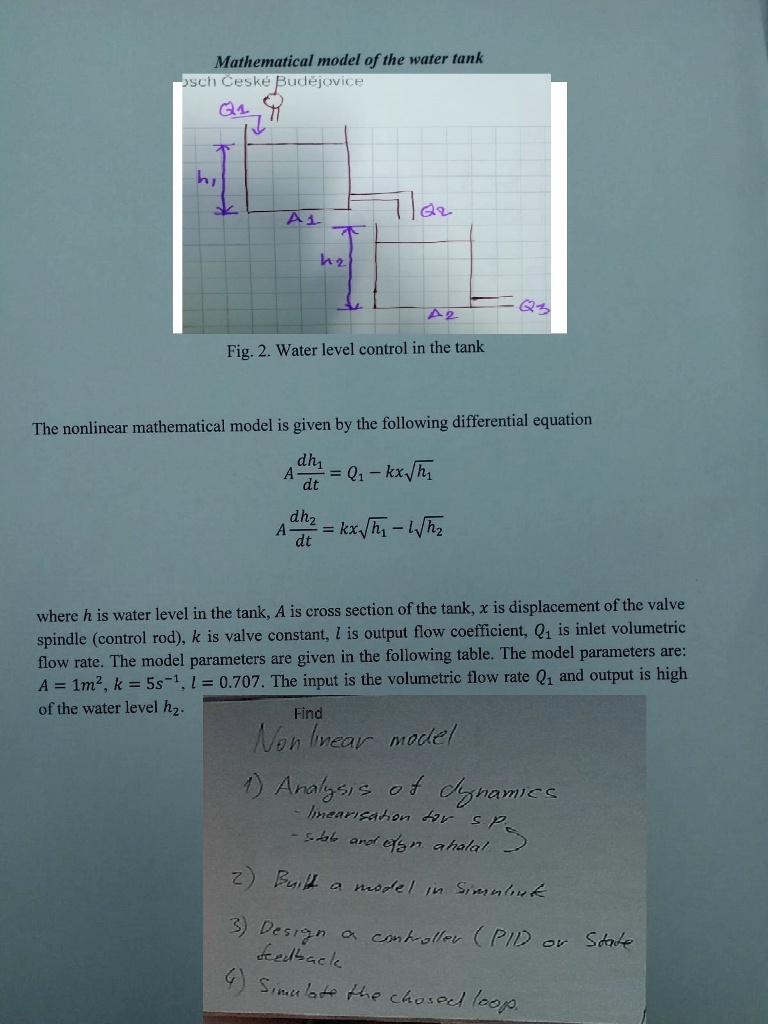 Mathematical model of the water tank
osch České Budějovice
Q1
h1
A1
Q2
h2
A2
Q3
Fig. 2. Water level control in the tank
The nonlinear mathematical model is given by the following differential equation
A dh₁/dt = Q₁ − kx√h₁
A dh₂/dt = kx√h₁ − l√h₂
where h is water level in the tank, A is cross section of the tank, x is displacement of the valve
spindle (control rod), k is valve constant, l is output flow coefficient, Q₁ is inlet volumetric
flow rate. The model parameters are given in the following table. The model parameters are:
A = 1m², k = 5s⁻¹, l = 0.707. The input is the volumetric flow rate Q₁ and output is high
of the water level h₂.
Find
Nonlinear model
1) Analysis of dynamics
- linearisation for s.p.
- stab and
2) Build a model in Simulink
3) Design a controller (PID or State
feedback
4) Simulate the chosed loop.